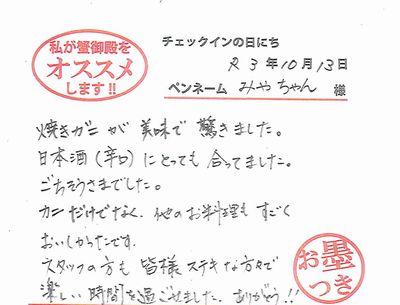 私が蟹御殿を
オススメ
します!!
チェックインの日にち
R3年10月13日
ペンネーム みやちゃん 様
焼きガニが美味で驚きました。
日本酒(辛口)にとっても合ってました。
ごちそうさまでした。
カニだけでなく、他のお料理もすごく
おいしかったです。
スタッフの方も皆様ステキな方々で
楽しい時間を過ごせました。ありがとう!!
お墨
つき